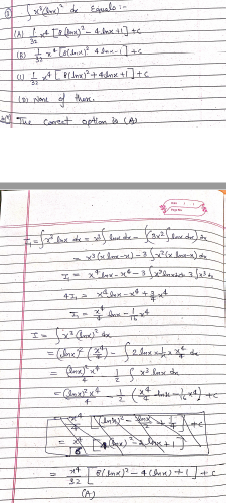 ① ∫ x³(lnx)² dx Equals :-
(A) 1/32 x⁴ [8(lnx)² - 4lnx + 1] + c
(B) 1/32 x⁴ [8(lnx)² 4lnx - 1] + c
(C) 1/32 x⁴ [8(lnx)² + 4lnx + 1] + c
(D) None of these.
The correct option is (A)
I₁ = ∫ x³ lnx dx = x³ ∫ lnx dx - ∫ (3x² ∫ lnx dx) dx
= x³ (x lnx - x) - 3 ∫ x² (x lnx - x) dx
I₁ = x⁴ lnx - x⁴ - 3 ∫ x³ lnx dx + 3 ∫ x³ dx
4I₁ = x⁴ lnx - x⁴ + 3/4 x⁴
I₁ = x⁴/4 lnx - 1/16 x⁴
I = ∫ x³ (lnx)² dx
= (lnx)² (x⁴/4) - ∫ 2 lnx × 1/x × x⁴/4 dx
= (lnx)² x⁴/4 - 1/2 ∫ x³ lnx dx
= (lnx)² x⁴/4 - 1/2 (x⁴/4 lnx - 1/16 x⁴) + c
= x⁴/32 [8(lnx)² - 4(lnx) + 1] + c
(A)